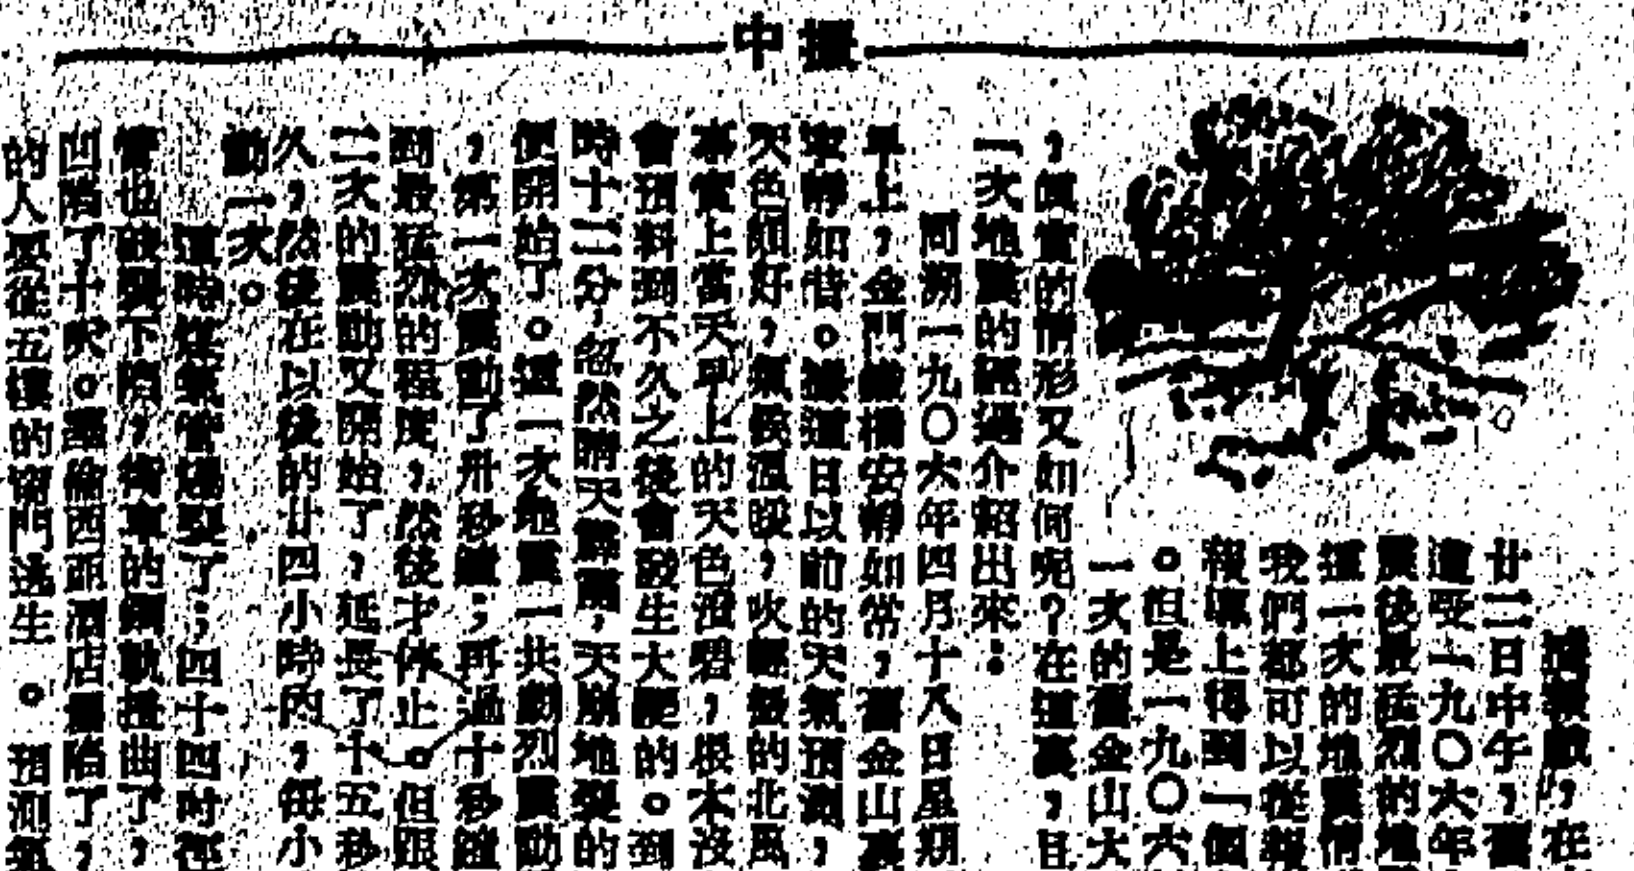 中
廿二日中午，舊
遭受一九〇六年
震後最猛烈的地
這一次的地震情
我們都可以從報
報壇上得到「個
。但是一九〇六
一次的舊金山大
，震實的情形又如何呢？在這裏，且
一次地震的經過介紹出來：
同溯一九〇六年四月十八日星期
早上，金門橋安靜如常，舊金山裏
寧靜如昔。據這日以前的天氣預測，
天色頗好，氣候溫暖，吹輕微的北風
事實上當天早上的天色澄碧，根本沒
會預料到不久之後會發生大變的。到
時十二分，忽然晴天霹靂，天崩地裂的
便開始了。這一次地震一共劇烈震動
，第一次震動了卅秒鐘；再過十秒鐘
到最猛烈的程度，然後才休止。但跟
二次的震動又開始了，延長了十五秒
久，然後在以後的廿四小時內，每小
動一次。
這時煤氣管爆裂了；四十四吋徑
管也被裂下陷，街車的鋼軌扭曲了，
凹陷了十呎。酒店塌陷了，
的人要從五樓的窗門逃生。預測氣